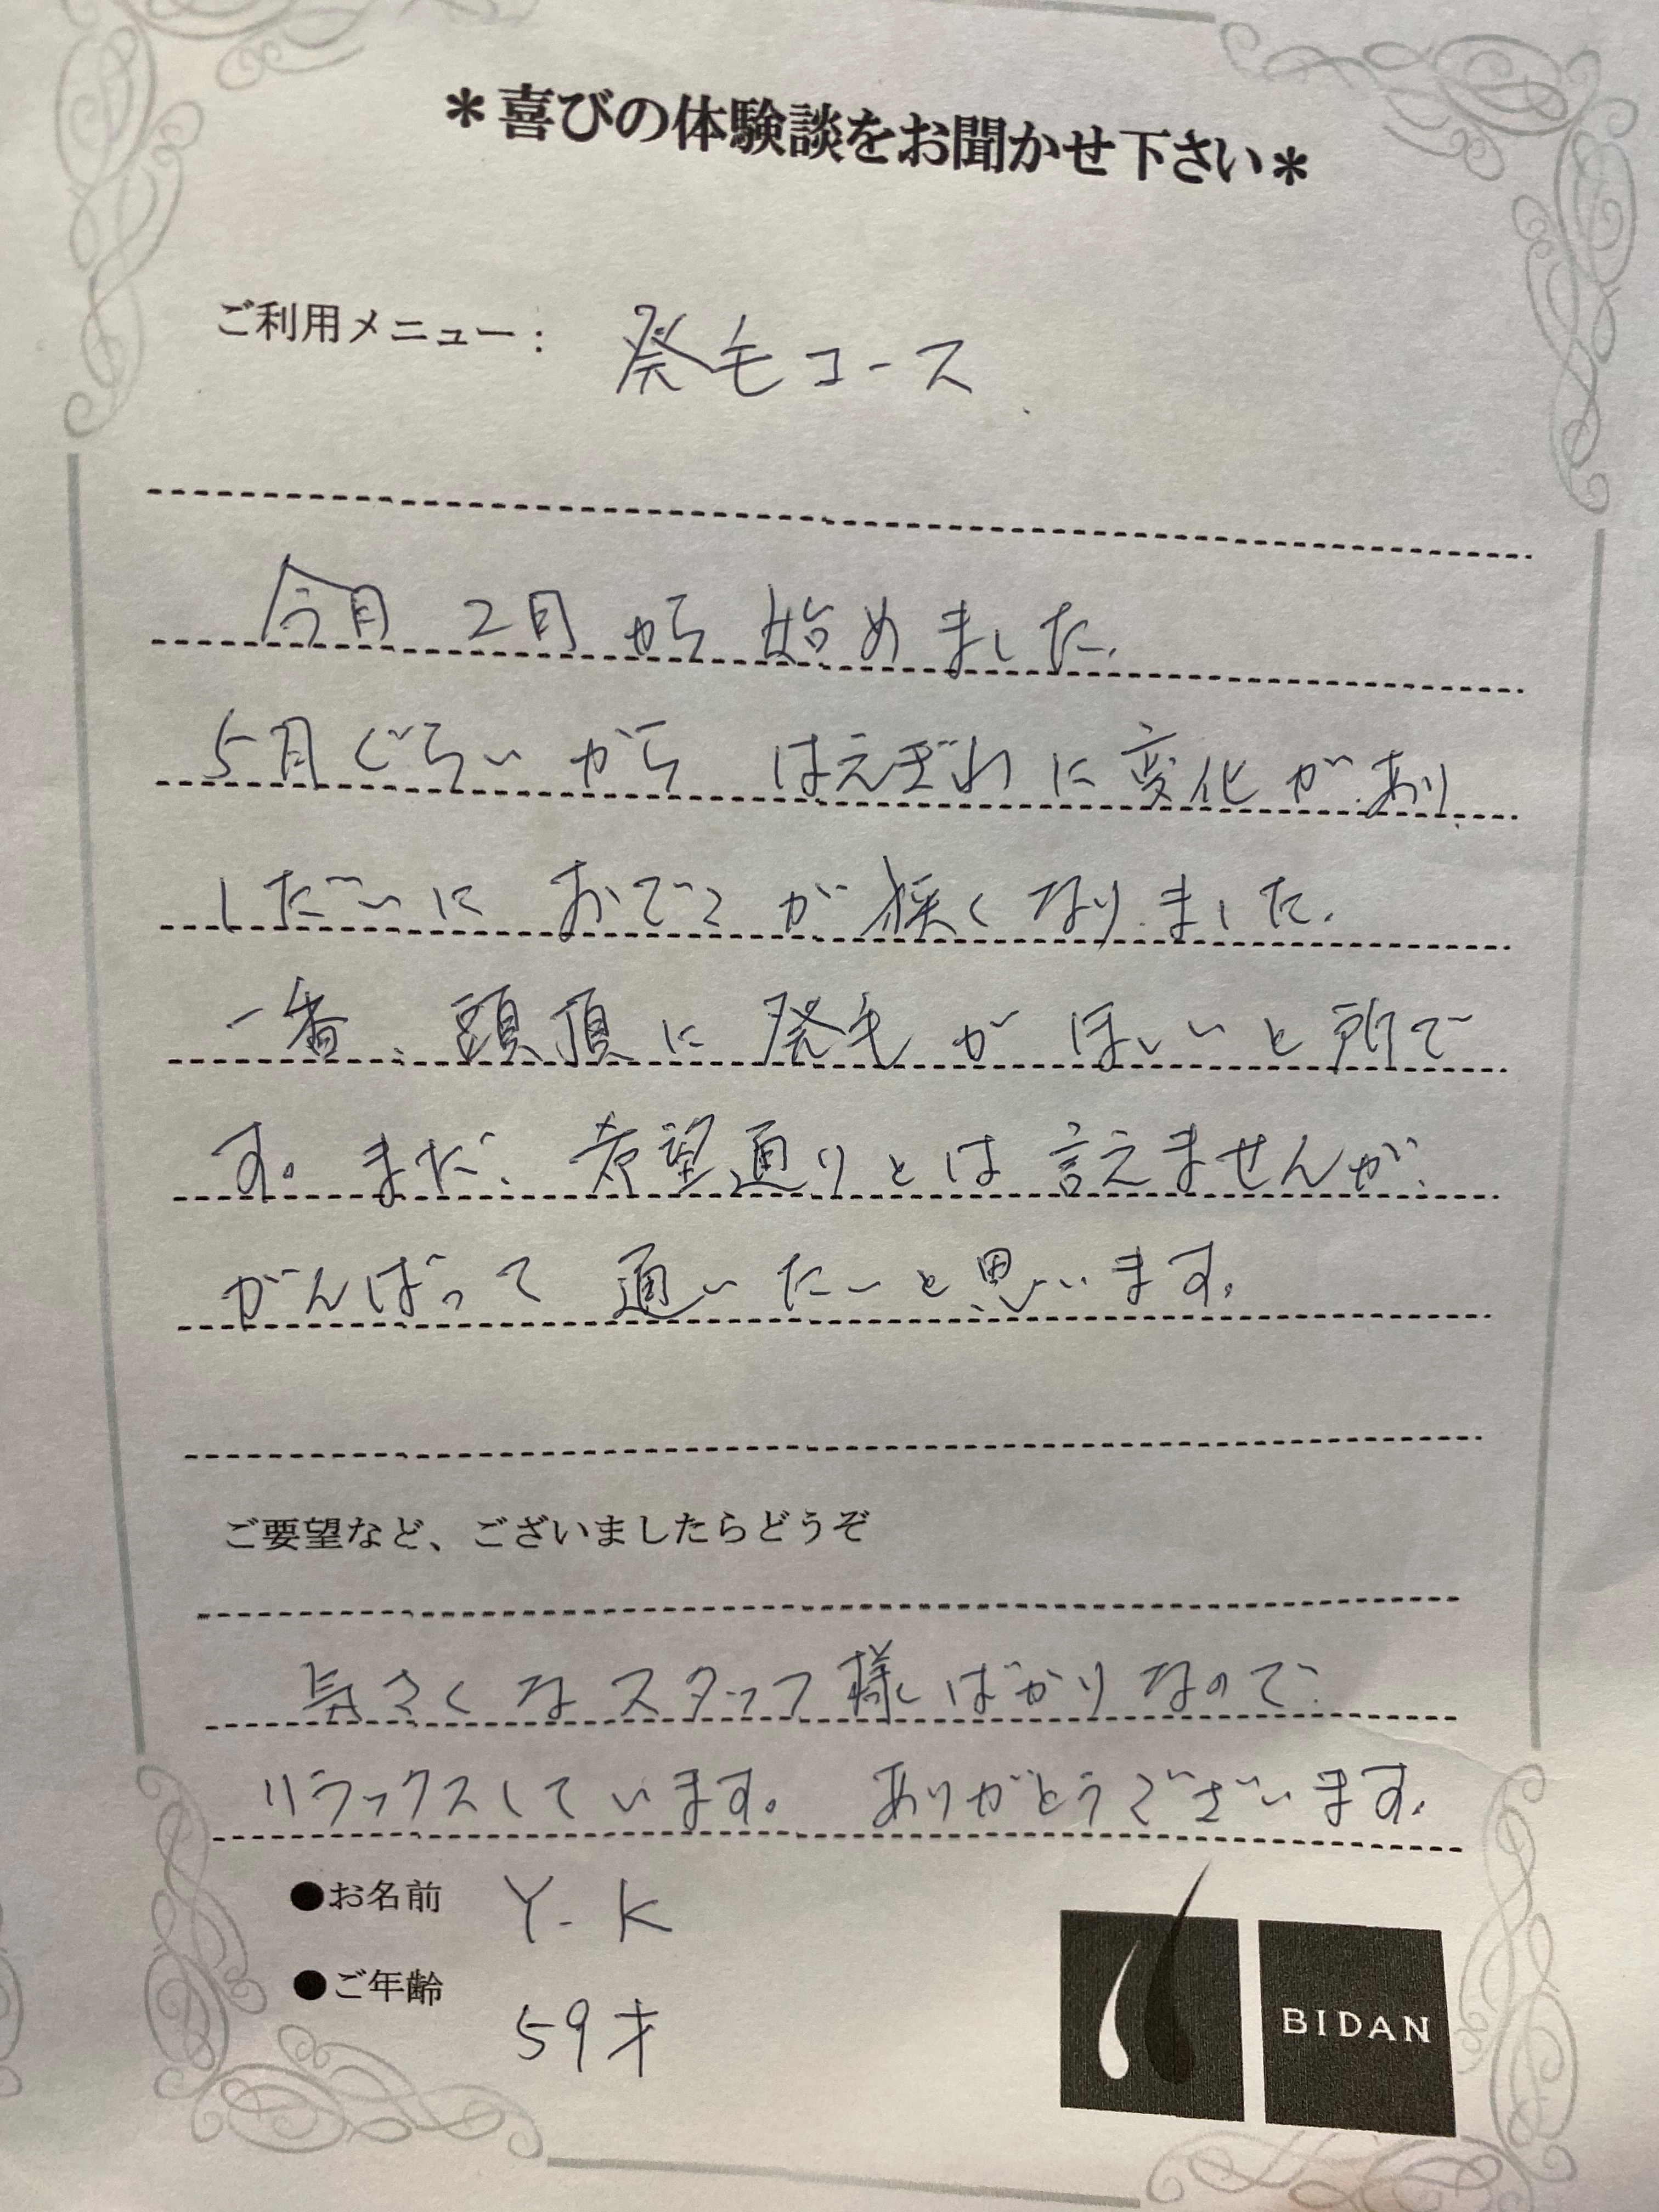 ＊喜びの体験談をお聞かせ下さい＊
ご利用メニュー： 発毛コース
今月 2月から 始めました.
5月ぐらいから はえぎわに変化があり
しだいに おでこが狭くなりました.
一番、頭頂に発毛がほしいと所で
す。まだ、希望通りとは言えませんが、
がんばって 通いたいと思います。
ご要望など、ございましたらどうぞ
気さくなスタッフ様ばかりなので、
リラックスしています。 ありがとうございます。
●お名前 Y.K
●ご年齢 59才
BIDAN